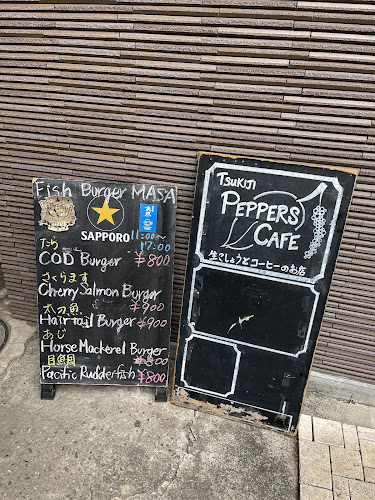 Fish Burger MASA
SAPPORO
11:00~
17:00
たら
COD Burger ¥800
さくらます
Cherry Salmon Burger
¥900
太刀魚
Hair tail Burger ¥900
あじ
Horse Mackerel Burger
¥800
目鯛
Pacific Rudderfish ¥800
TSUKIJI
PEPPERS
CAFE
生こしょうとコーヒーのお店